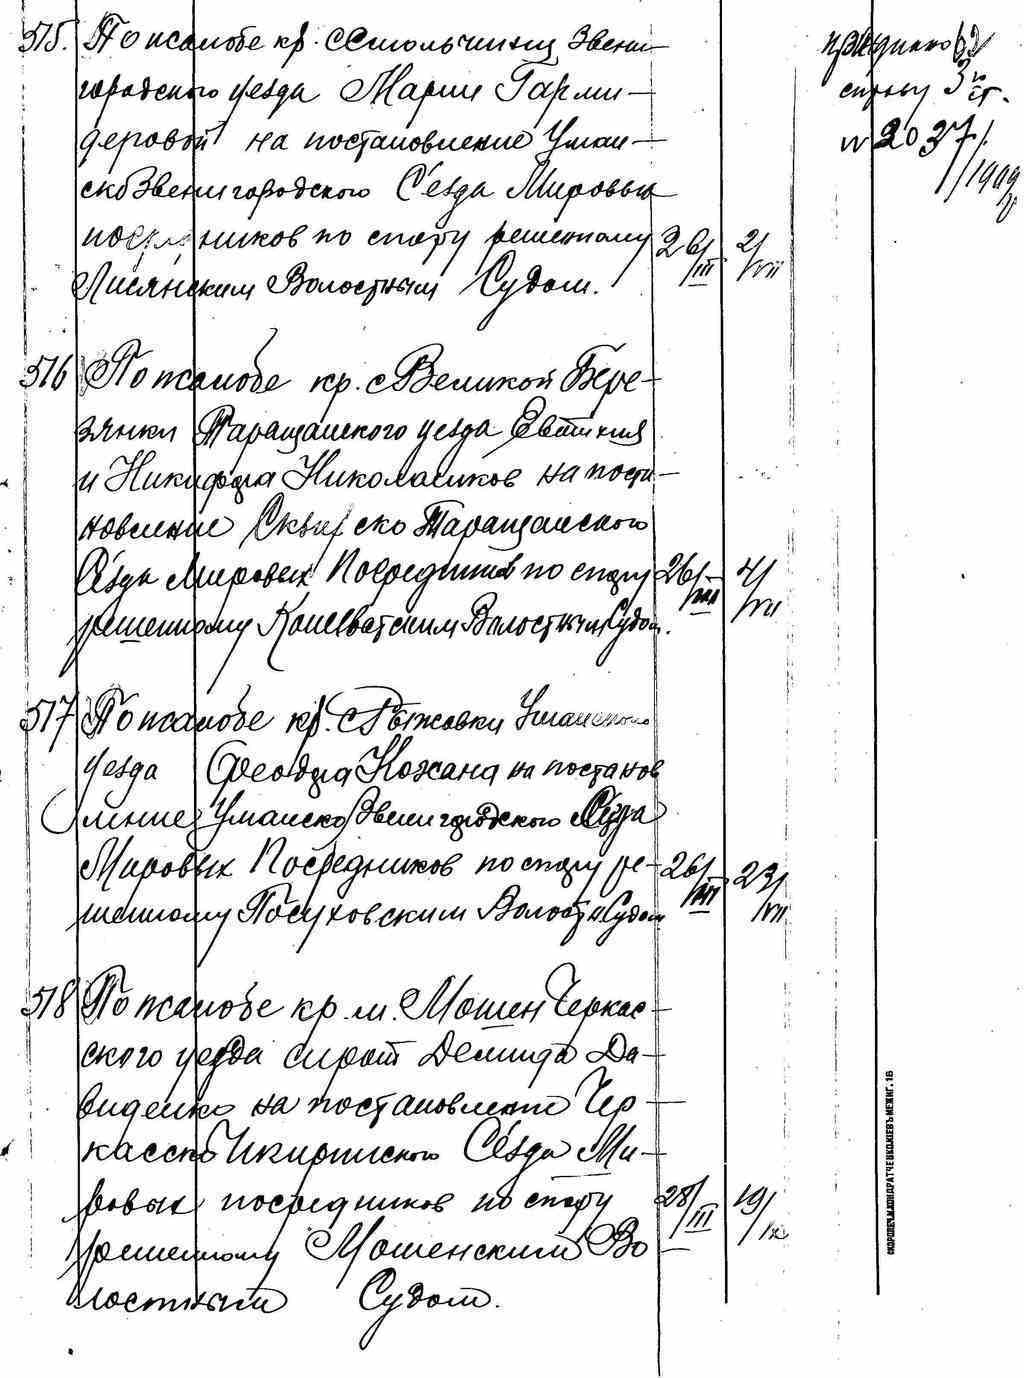 515. По жалобе кр. с Стольчинец Звени-
городского уезда Марии Гарми-
деровой на постановление Уман-
ско Звенигородского Съезда Мировых
посредников по спору решенному 26/III 2/VII
Лисянским Волостным Судом.
516 По жалобе кр. с Великой Бере-
зянки Таращанского уезда Евтихия
и Никифора Николаенков на поста-
новление Сквирско Таращанского
Съезда Мировых Посредников по спору 26/III 4/VII
решенному Конелватским Волостным Судом.
517 По жалобе кр. с Рыжовки Уманского
уезда Феодора Кожана на постанов
ление Уманско Звенигородского Съезда
Мировых Посредников по спору ре- 26/III 23/VII
шенному Посуховским Волостн Судом
518 По жалобе кр. м. Мошен Черкас-
ского уезда сирот Демида Да-
виденко на постановление Чер-
касско Чигиринского Съезда Ми-
ровых посредников по спору 28/III 19/IX
решенному Мошенским Во-
лостным Судом.
спр
3 ст.
№ 2037/1909